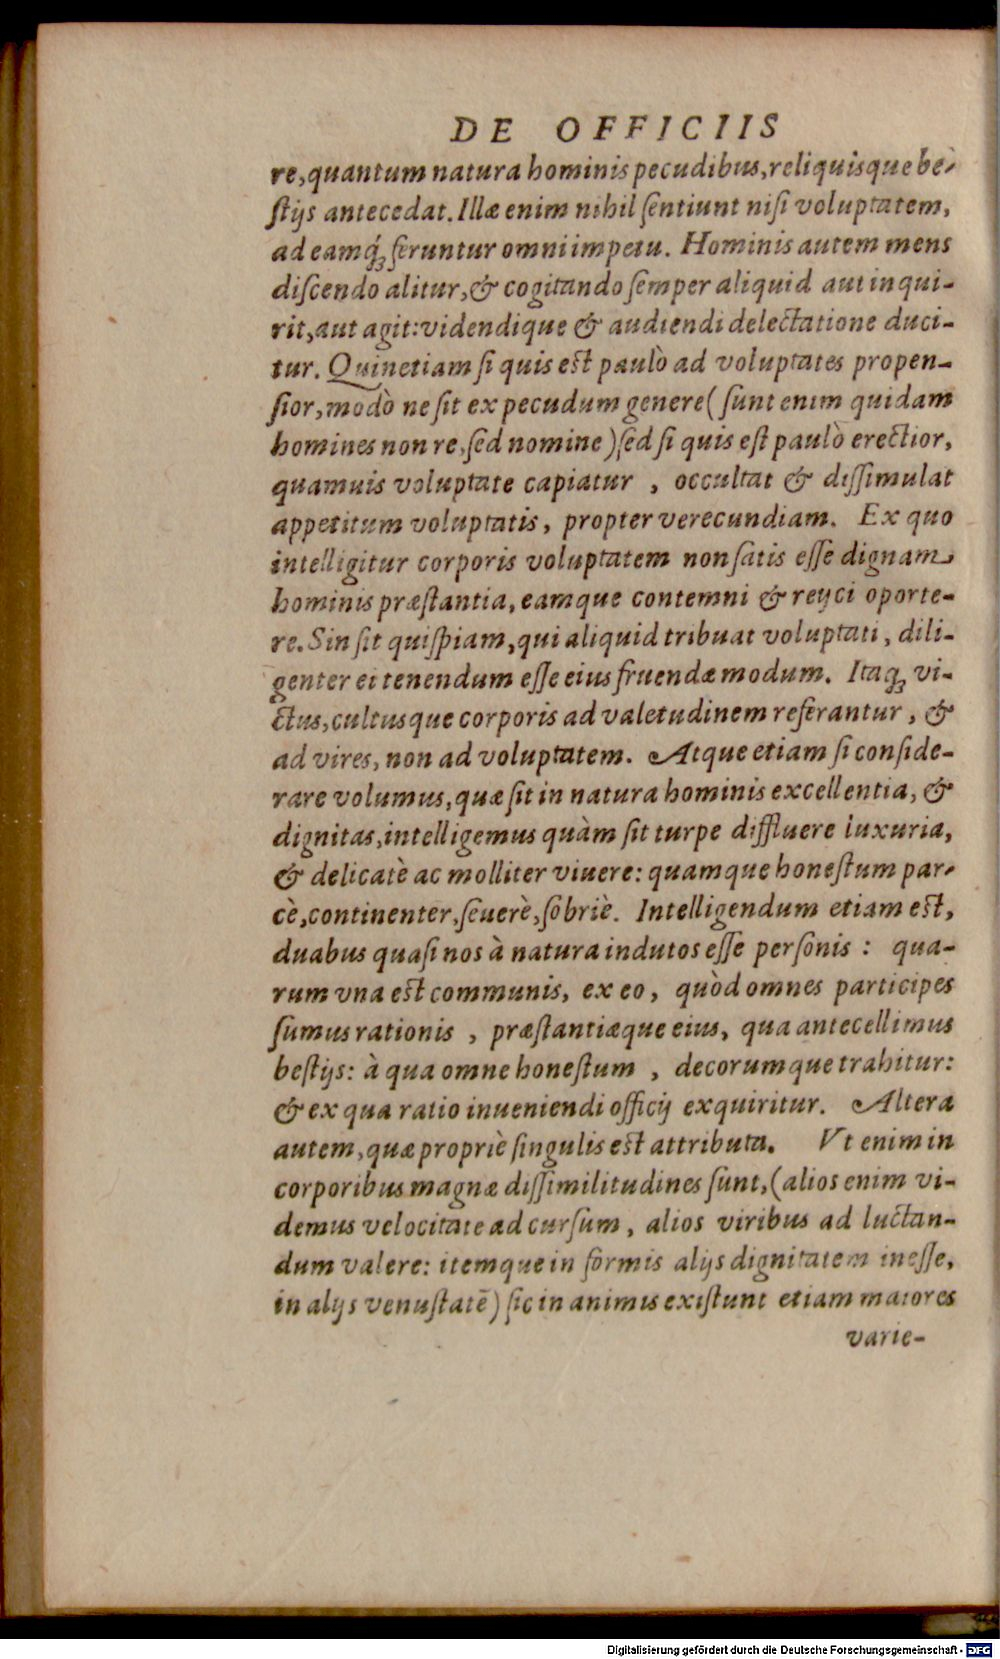 DE OFFICIIS
re, quantum natura hominis pecudibus, reliquisque be-
ſtijs antecedat. Illæ enim nihil ſentiunt niſi voluptatem,
ad eamq́ꝫ feruntur omni impetu. Hominis autem mens
diſcendo alitur, & cogitando ſemper aliquid aut inqui-
rit, aut agit: videndique & audiendi delectatione duci-
tur. Quinetiam ſi quis est paulò ad voluptates propen-
ſior, modò ne ſit ex pecudum genere (ſunt enim quidam
homines non re, ſed nomine) ſed ſi quis eſt paulò erectior,
quamuis voluptate capiatur , occultat & diſſimulat
appetitum voluptatis, propter verecundiam. Ex quo
intelligitur corporis voluptatem non ſatis eſſe dignam
hominis præſtantia, eamque contemni & reijci oporte-
re. Sin ſit quiſpiam, qui aliquid tribuat voluptati, dili-
genter ei tenendum eſſe eius fruendæ modum. Itaqꝫ vi-
ctus, cultusque corporis ad valetudinem referantur, &
ad vires, non ad voluptatem. Atque etiam ſi conſide-
rare volumus, quæ ſit in natura hominis excellentia, &
dignitas, intelligemus quàm ſit turpe diffluere luxuria,
& delicatè ac molliter viuere: quamque honeſtum par-
cè, continenter, ſeuerè, ſobriè. Intelligendum etiam est,
duabus quaſi nos à natura indutos eſſe perſonis : qua-
rum vna est communis, ex eo, quòd omnes participes
ſumus rationis , præſtantiæque eius, qua antecellimus
beſtijs: à qua omne honeſtum , decorumque trahitur:
& ex qua ratio inueniendi officij exquiritur. Altera
autem, quæ propriè ſingulis est attributa. Vt enim in
corporibus magnæ diſſimilitudines ſunt, (alios enim vi-
demus velocitate ad curſum, alios viribus ad luctan-
dum valere: itemque in formis alijs dignitatem ineſſe,
in alijs venuſtatē) ſic in animis exiſtunt etiam maiores
varie-
Digitalisierung gefördert durch die Deutsche Forschungsgemeinschaft - DFG